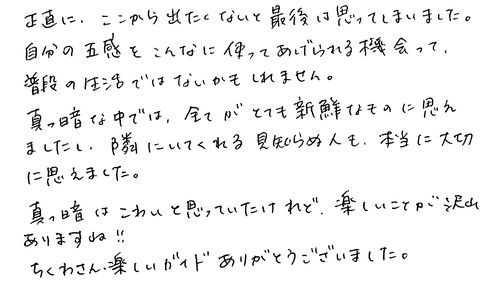 正直に、ここから出たくないと最後は思ってしまいました。
自分の五感をこんなに使ってあげられる機会って、
普段の生活ではないかもしれません。
真っ暗な中では、全てがとても新鮮なものに思え
ましたし、隣にいてくれる見知らぬ人も、本当に大切
に思えました。
真っ暗はこわいと思っていたけれど、楽しいことが沢山
ありますね!!
ちくわさん、楽しいガイドありがとうございました。